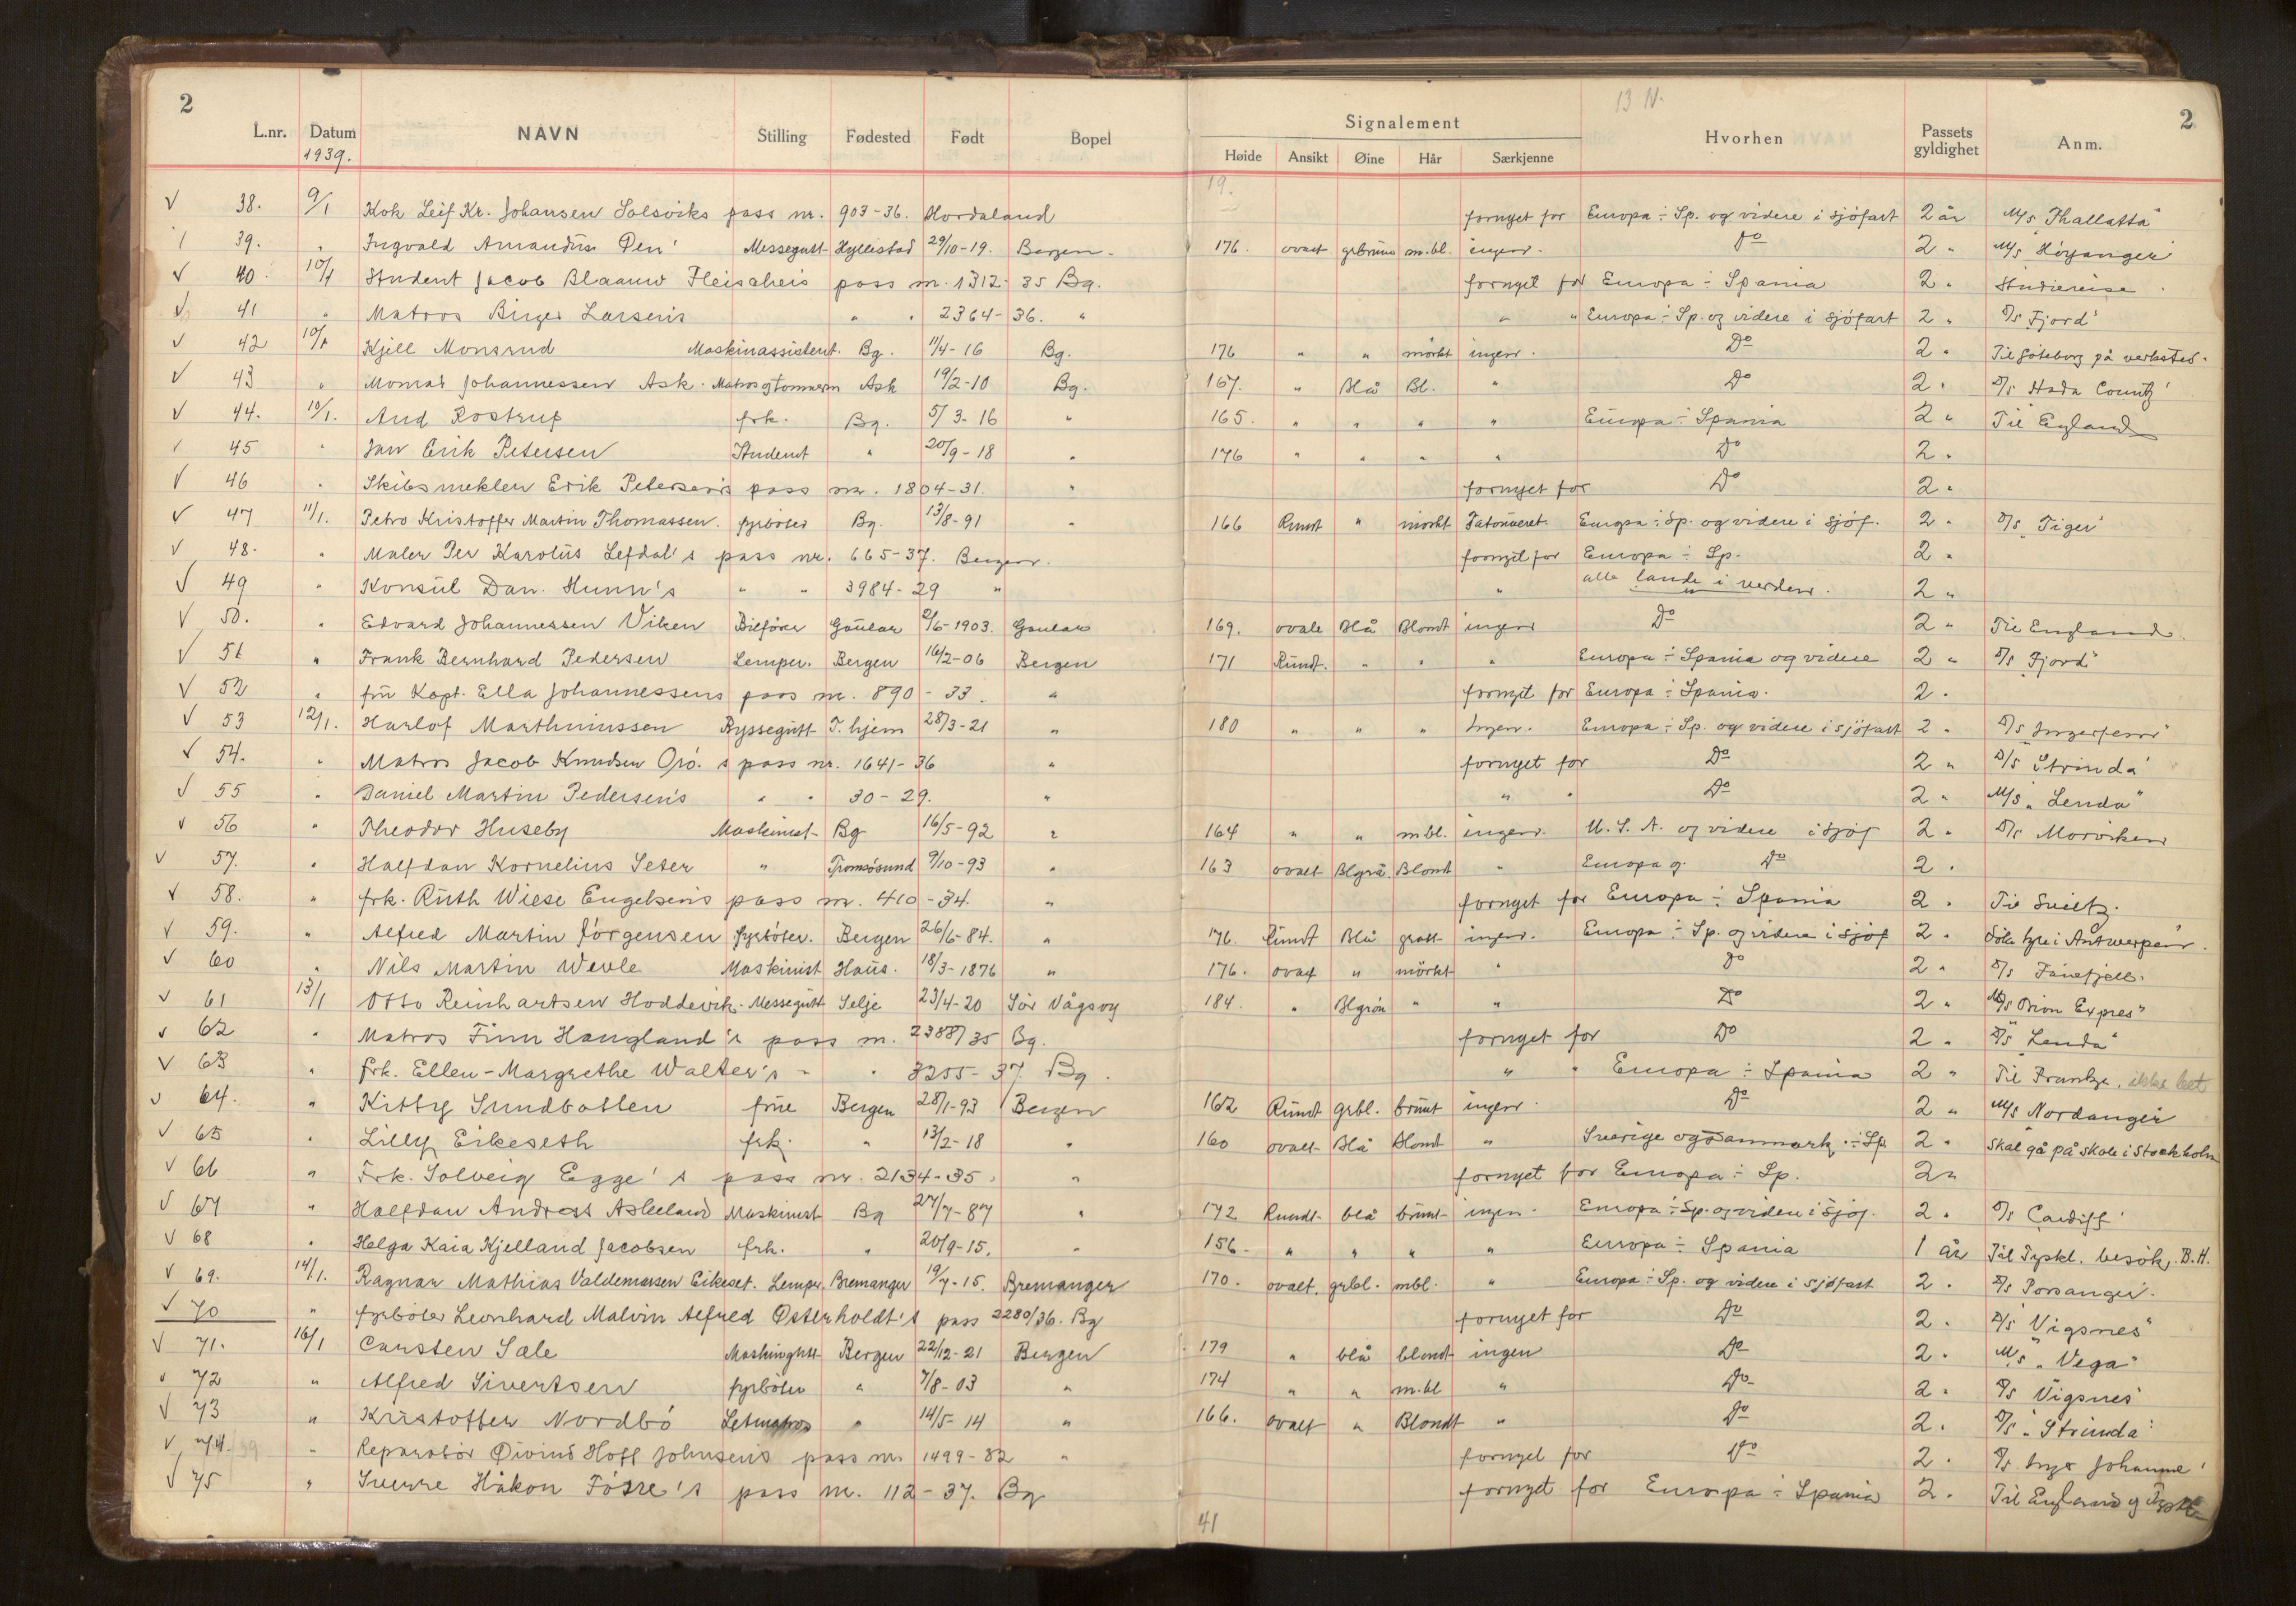 2 13 N. 2
L.nr. Datum NAVN Stilling Fødested Født Bopel Signalement Hvorhen Passets gyldighet Anm.
1939. Høide Ansikt Øine Hår Særkjenne
19.
√ 38. 9/1 Kok Leif Kr. Johansen Solsviks pass nr. 903-36. Hordaland fornyet for Europa ÷ Sp. og videre i sjöfart 2 år M/S "Thallatta"
39. " Ingvald Amandus Messegutt Hyllestad 29/10-19. Bergen. 176. ovalt grbrune m.bl. ingen. Do 2 " M/S Höyanger
√ 40. 10/1 Student Jacob Blaauw Fleischers pass nr. 1312-35 Bg. fornyet for Europa ÷ Spania 2 " Studiereise.
√ 41 " Matros Birger Larsens " " 2364-36. " " " Europa ÷ Sp. og videre i sjöfart 2 " D/S "Fjord"
√ 42 10/1 Kjell Monsrud Maskinassistent. Bg. 11/4-16 Bg. 176 " " mörkt ingen. Do 2 " Til Göteborg på verksted.
√ 43 " Johannessen Ask. Matros og tömmerm Ask 19/2-10 Bg. 167. " Blå Bl. " Do 2 " D/S County
√ 44. 10/1. Aud Rostrup frk. Bg. 5/3-16 " 165. " " " " Europa ÷ Spania 2 " Til England
45 " Jan Erik Petersen Student " 20/9-18 " 176 " " " " Do 2 "
√ 46 " Skibsmekler Erik Petersens pass nr. 1804-31. " fornyet for Do 2 "
√ 47 11/1. Petro Kristoffer Martin Thomassen. fyrböter Bg. 13/8-91 " 166 Rundt " mörkt Tatoveret. Europa ÷ Sp. og videre i sjöf. 2 " D/S "Tiger"
√ 48. " Maler Per Karolus Lefdal's pass nr. 665-37. Bergen. fornyet for Europa ÷ Sp. 2 "
√ 49 " Konsul Dan. " " 3984-29 " " alle lande i verden. 2 "
√ 50. " Edvard Johannessen Viken Bilförer Gaular 2/6-1903. Gaular 169. ovale Blå Blondt ingen Do 2 " Til England.
√ 51 " Frank Bernhard Pedersen Lemper. Bergen 16/2-06 Bergen 171 Rundt. " " " Europa ÷ Spania og videre 2 " D/S "Fjord"
√ 52 " fru Kapt. Ella Johannessens pass nr. 890-33. " fornyet for Europa ÷ Spania. 2 "
√ 53 12/1. Harlof Marthinussen Byssegutt T. hjem 28/3-21 " 180 " " " Ingen. Europa ÷ Sp. og videre i sjöfart 2 " D/S "Ingerfem"
√ 54. " Matros Jacob Knudsen s pass nr. 1641-36 " fornyet for Do 2 " D/S "Strinda"
√ 55 " Daniel Martin Pedersens " " 30-29. " " " Do 2 " M/S "Lenda"
√ 56 " Theodor Huseby Maskinist Bg 16/5-92 " 164 " " mbl. ingen. U.S.A. og videre i sjöf 2 " D/S Morviken
√ 57. " Halfdan Kornelius Seter " Tromsösund 9/10-93 " 163 ovalt Blgrå. Blondt " Europa og Do 2 "
√ 58. " frk. Ruth Wiese Engelsens pass nr. 410-34. " fornyet for Europa ÷ Spania 2 " Til Sveitz.
√ 59. " Alfred Martin Jörgensen fyrböter. Bergen 26/6-84. " 176. Rundt Blå grått ingen. Europa ÷ Sp. og videre i sjöf 2 " Söke hyre i Antwerpen.
√ 60 " Nils Martin Wevle Maskinist Haus. 18/3-1876 " 176. ovalt " mörkt " Do 2 " D/S Fanefjell.
√ 61 13/1 Otto Reinhartsen Hoddevik. Messegutt Selje 23/4-20 Sör Vågsoy 184. " Blgrön " " Do 2 " Expres"
√ 62 " Matros Finn Haugland's pass nr. 2388/35 Bg. fornyet for Do 2 " "Lenda"
√ 63 " frk. Ellen-Margrethe Walter's " " 3255-37 Bg. " " Europa ÷ Spania 2 " Til Frankr. ikke
√ 64. " Kitty Sundbotten frue Bergen 28/1-93 Bergen 162 Rundt grbl. brunt ingen. Do 2 " M/S Nordanger
√ 65 " Lilly Eikeseth frk. " 13/2-18 " 160 ovalt Blå Blondt " Sverige og Danmark. ÷ Sp. 2 " Skal gå på skole i Stockholm
√ 66 " Frk. Solveig Egge's pass nr. 2134-35. " fornyet for Europa ÷ Sp. 2 "
√ 67 " Halfdan Andreas Askeland Maskinist Bg 27/7-87 " 172 Rundt blå brunt ingen. Europa ÷ Sp. og videre i sjöf. 2 " D/S "Cardiff"
√ 68 " Helga Kaia Kjelland Jacobsen frk. " 20/9-15. " 156 " " " " Europa ÷ Spania 1 år Til Tyskl. besök. B.H.
√ 69. 14/1. Ragnar Mathias Valdemarsen Eikeset. Lemper. Bremanger 19/7-15. Bremanger 170. ovalt. grbl. mbl. " Europa ÷ Sp. og videre i sjöfart 2 " D/S Porsanger.
√ 70 " fyrböter Leonhard Malvin Alfred Österholdt's pass 2280/36. Bg fornyet for Do 2 " D/S "Vigsnes"
√ 71. 16/1 Carsten Sale Maskingutt Bergen 22/12-21 Bergen 179 " blå blondt ingen Do 2 " M/S "Vega"
√ 72 " Alfred Sivertsen fyrböter " 7/8-03 " 174 " " m.bl " Do 2 " D/S Vigsnes
√ 73 " Kristoffer Nordbö Letmatros " 14/5-14 " 166. ovalt " Blondt " Do 2 " D/S "Strinda"
√ 74. " Reparatör Öivind Hoff Johnsens pass nr. 1499-32 " fornyet for Do 2 " D/S Inger Johanne
√ 75 " Sverre Håkon Fösre's pass nr. 112-37. Bg fornyet for Europa ÷ Spania 2 " Til England og Tyskl
41